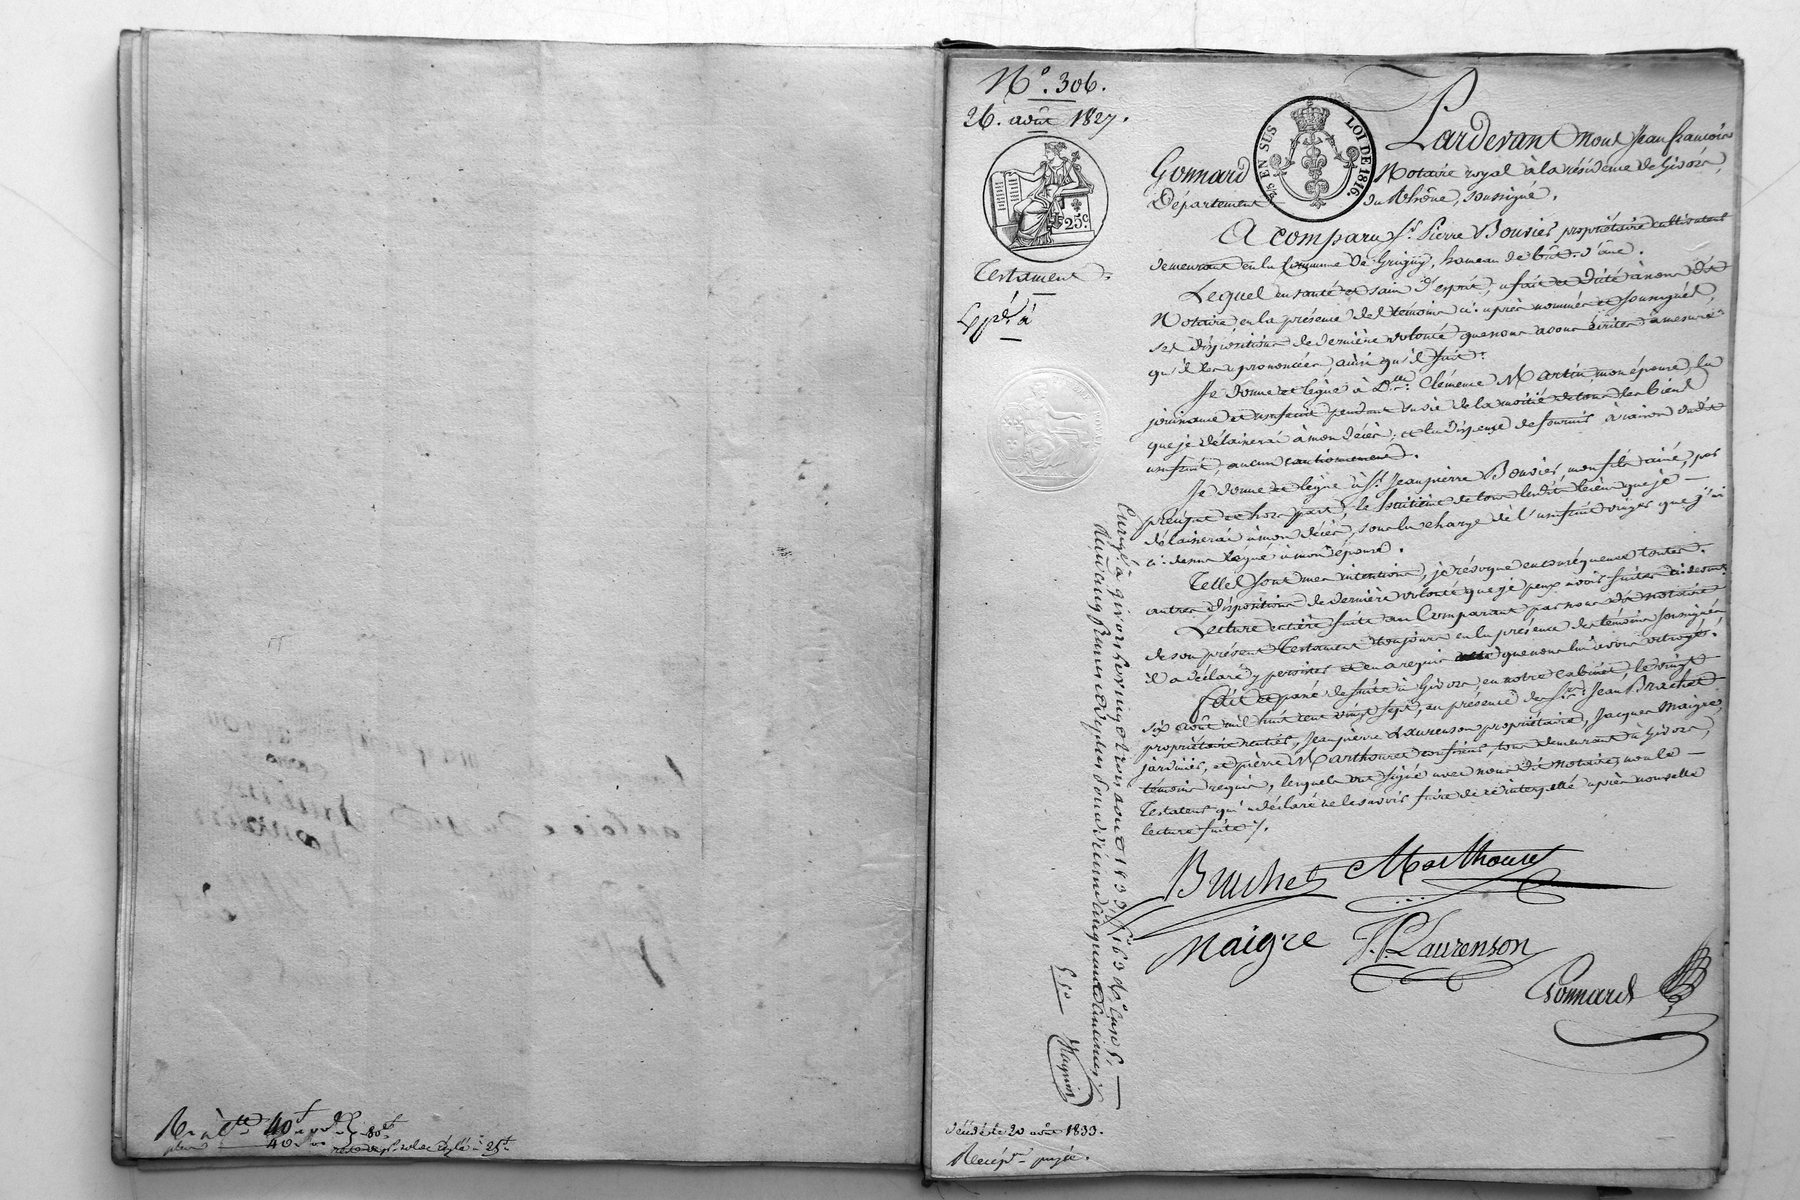 N.o 306.
26. août 1827.
25c.
Testament.
Exp.é à
EN SUS
LOI DE 1816.
Pardevant nous Jean françois
Gonnard Notaire royal à la résidence de Givors,
Département du Rhône, soussigné.
A comparu Sr. Pierre Bouvier propriétaire cultivateur
demeurant en la Commune de Grigny, hameau de bût-d'âne.
Lequel en santé et sain d'esprit, a fait et dicté à nous dit
Notaire en la présence des témoins ci-après nommés et soussignés
ses dispositions de dernière volonté que nous avons écrites à mesure
qu'il les a prononcées, ainsi qu'il suit:
Je donne et lègue à Dlle. Clémence Martin, mon épouse, la
jouissance et usufruit pendant sa vie de la moitié de tous les biens
que je délaisserai à mon décès, et la dispense de fournir, à raison dudit
usufruit, aucun cautionnement.
Je donne et lègue à Sr. Jeanpierre Bouvier, mon fils ainé, par
préciput et hors part, le huitième de tous lesdits biens que je
délaisserai à mon décès, sous la charge de l'usufruit viager que j'ai
ci-dessus légué à mon épouse.
Telles sont mes intentions, je révoque en conséquence toutes
autres dispositions de dernière volonté que je peux avoir faites ci-devant.
Lecture entière faite au Comparant par nous dit notaire
de son présent Testament toujours en la présence des témoins soussignés
il a déclaré y persister et en a requis que nous lui avons octroyé.
fait et passé de suite à Givors en notre cabinet, le vingt
six août mil huit cent vingt sept, en présence de Srs. Jean Bruchet
propriétaire rentier, Jeanpierre Laurenson propriétaire, Jacques Maigre,
jardinier, et pierre Marthouret confiseur, tous demeurant à Givors,
témoins requis, lesquels ont signé avec nous dit notaire, non le
Testateur qui a déclaré ne le savoir faire de ce interpellé après nouvelle
lecture faite ./.
Bruchet Marthouret
Maigre J.P. Laurenson
Gonnard
Enregé. à givors le vingt trois aout 1833, fo. 163
Reçu cinq francs et plus pour dixième cinquante centimes
5.50
Magnin
Décédé le 20 août 1833.
40
40